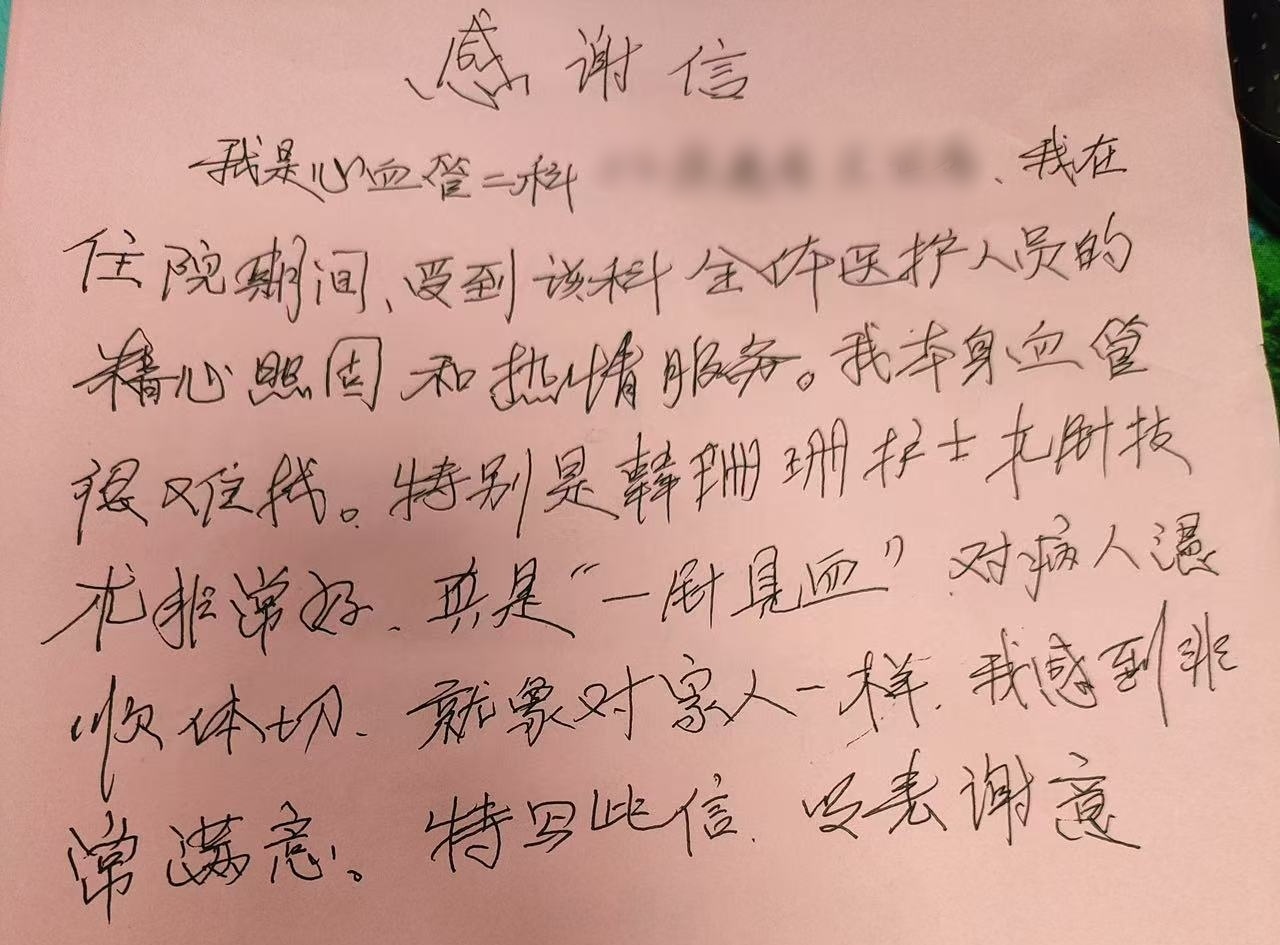 感谢信
我是心血管二科 、我在
住院期间、受到该科全体医护人员的
精心照固和热情服务。我本身血管
很难找。特别是韩珊珊护士扎针技
术非常好、真是“一针见血”、对病人温
顺体切、就象对家人一样、我感到非
常满意。特写此信、以表谢意